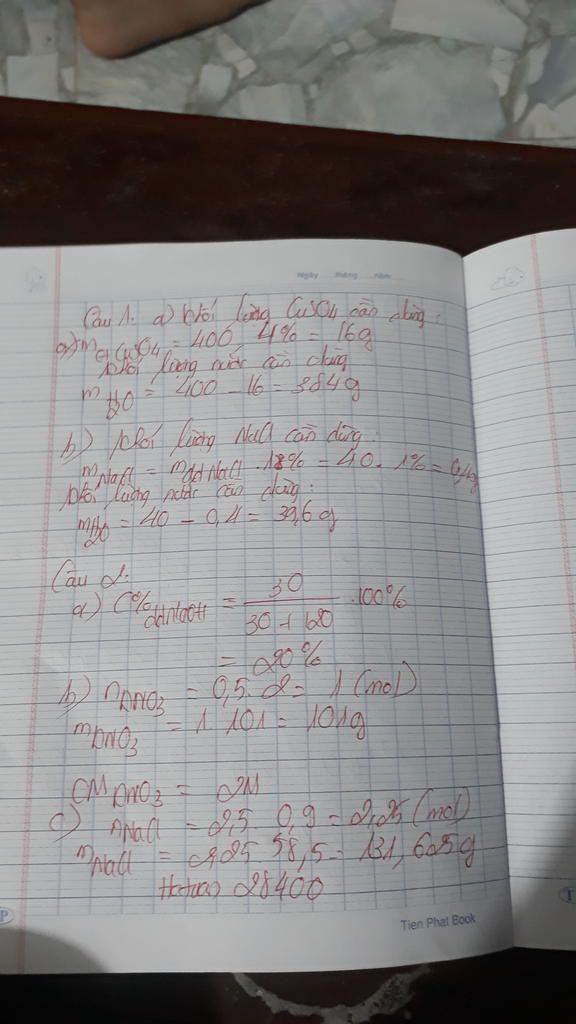 Ngày tháng năm
Câu 1. a) khối lượng CuSO4 cần dùng:
a) mctCuSO4 = 400. 4% = 16g
khối lượng nước cần dùng
mH2O = 400 - 16 = 384g
b) khối lượng NaCl cần dùng:
mNaCl = mddNaCl . 1% = 40. 1% = 0,4g
khối lượng nước cần dùng:
mH2O = 40 - 0,4 = 39,6g
Câu 2:
a) C%ddNaOH = 30 / 30 + 120 . 100%
= 20%
b) nKNO3 = 0,5. 2 = 1 (mol)
mKNO3 = 1. 101 = 101g
CMKNO3 = 2M
c) nNaCl = 2,5. 0,9 = 2,25 (mol)
mNaCl = 2,25 58,5 = 131,625g
28400
Tien Phat Book
P
T